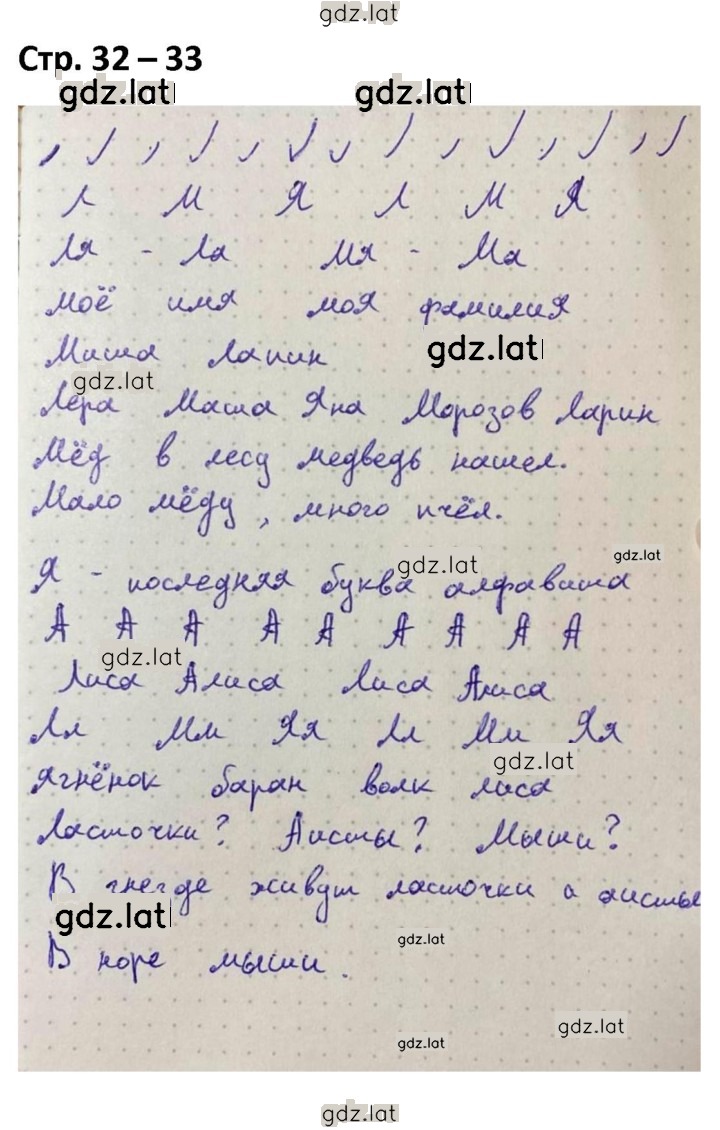 gdz.lat
Стр. 32 – 33
gdz.lat gdz.lat
Л М Я Л М Я
Ля - Ла Мя - Ма
моё имя моя фамилия
gdz.lat
Миша Лапин
gdz.lat
Лера Маша Яна Морозов Ларин
Мёд в лесу медведь нашел.
Мало мёду, много пчёл.
gdz.lat gdz.lat
Я - последняя буква алфавита
А А А А А А А А А
gdz.lat
Лиса Алиса Лиса Алиса
Лл Мм Яя Лл Мм Яя
gdz.lat
ягнёнок баран волк лиса
Ласточки? Аисты? Мыши?
В гнезде живут ласточки и аисты
gdz.lat
gdz.lat
В норе мыши.
gdz.lat
gdz.lat
gdz.lat